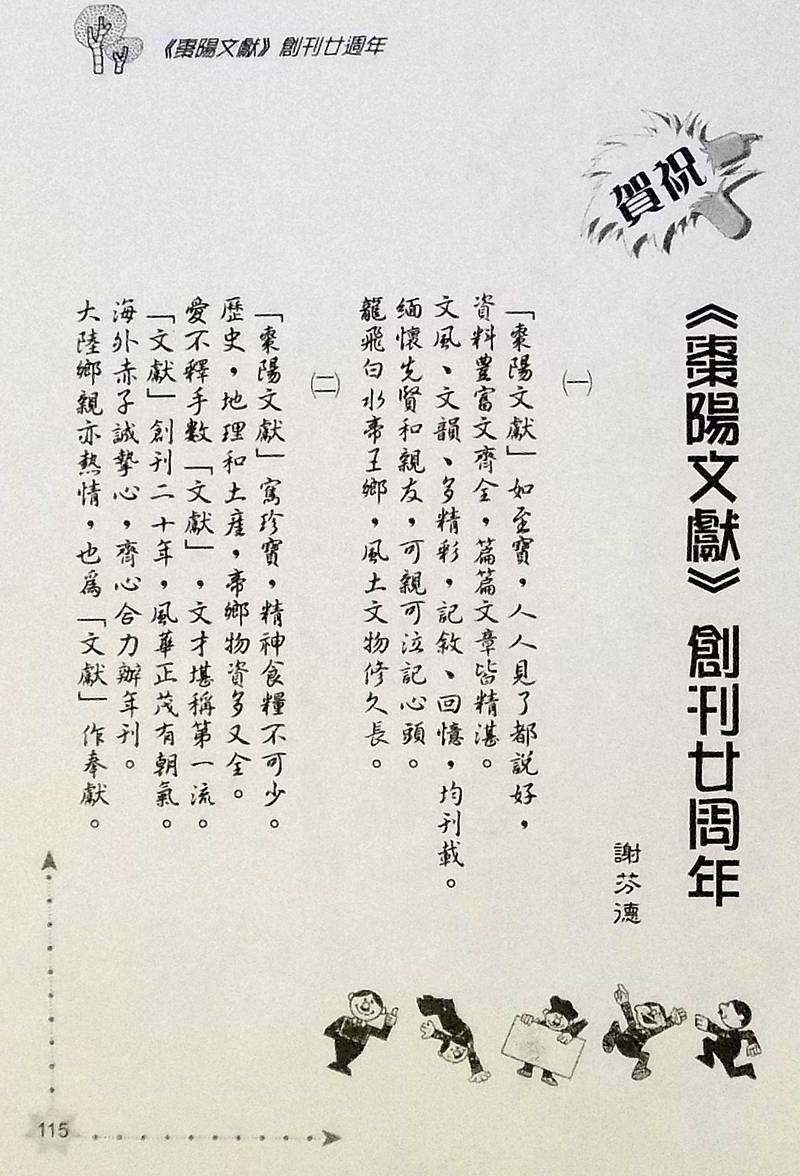 《棗陽文獻》創刊廿週年
祝賀
《棗陽文獻》創刊廿周年
謝芬德
㈠
「棗陽文獻」如至寶，人人見了都說好，
資料豐富文齊全，篇篇文章皆精湛。
文風、文韻、多精彩，記敘、回憶，均刊載。
緬懷先賢和親友，可親可泣記心頭。
龍飛白水帝王鄉，風土文物修久長。
㈡
「棗陽文獻」寫珍寶，精神食糧不可少。
歷史，地理和土產，帝鄉物資多又全。
愛不釋手數「文獻」，文才堪稱第一流。
「文獻」創刊二十年，風華正茂有朝氣。
海外赤子誠摯心，齊心合力辦年刊。
大陸鄉親亦熱情，也為「文獻」作奉獻。
115